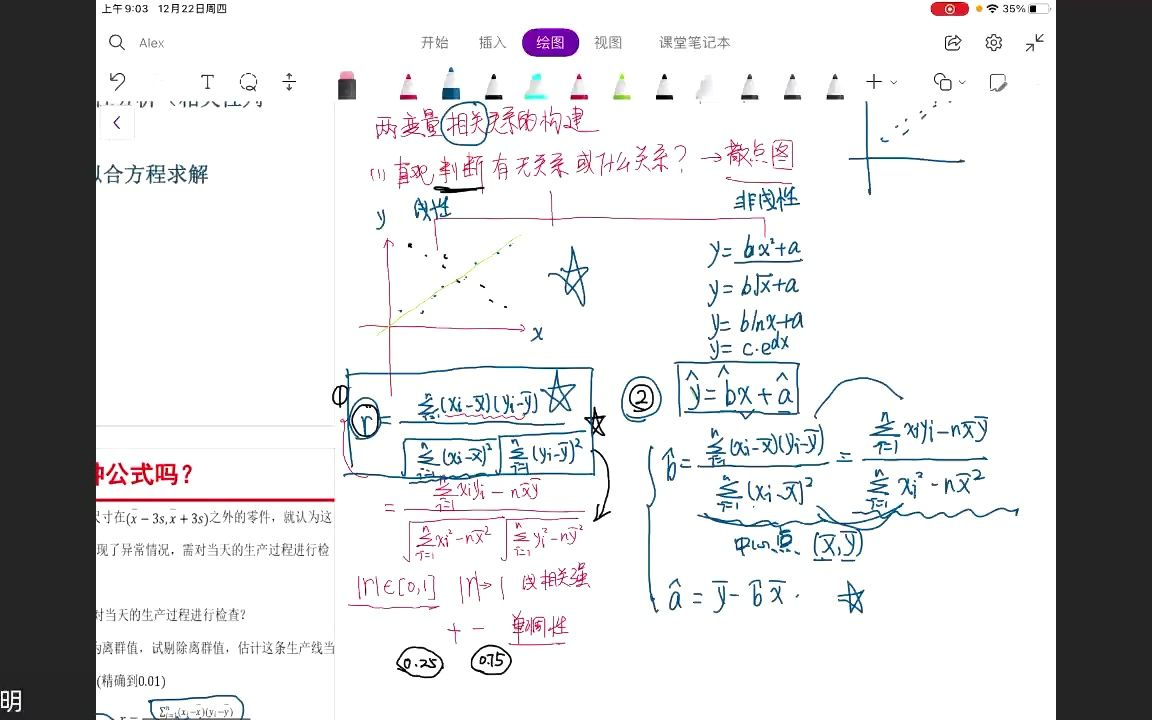 上午9:03 12月22日周四
35%
Alex
开始 插入 绘图 视图 课堂笔记本
两变量相关关系的构建
(1) 直观判断有无关系或什么关系? → 散点图
y
线性
非线性
x
y = bx²+a
y = b√x+a
y = blnx+a
y = c·e^dx
① r = Σ(i=1→n)(xi-x̄)(yi-ȳ) / √Σ(i=1→n)(xi-x̄)² √Σ(i=1→n)(yi-ȳ)²
= Σ(i=1→n)xiyi - nx̄ȳ / √Σ(i=1→n)xi²-nx̄² √Σ(i=1→n)yi²-nȳ²
|r|∈[0,1] |r|→1 线相关强
+ - 单调性
0.25 0.75
② ŷ = b̂x + â
b̂ = Σ(i=1→n)(xi-x̄)(yi-ȳ) / Σ(i=1→n)(xi-x̄)² = Σ(i=1→n)xiyi-nx̄ȳ / Σ(i=1→n)xi²-nx̄²
中心点 (x̄,ȳ)
â = ȳ - b̂x̄.
合方程求解
种公式吗?
尺寸在(x̄ − 3s, x̄ + 3s)之外的零件，就认为这
现了异常情况，需对当天的生产过程进行检
对当天的生产过程进行检查?
为离群值，试剔除离群值，估计这条生产线当
(精确到0.01)
r = Σ(i=1→n)(xi-x̄)(yi-ȳ)
明